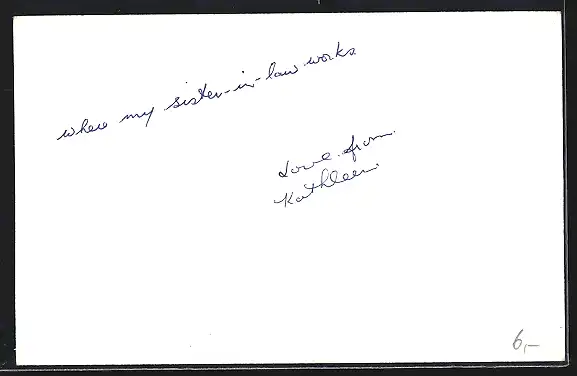 where my sister-in-law works.
Love from
Kathleen.
6,-